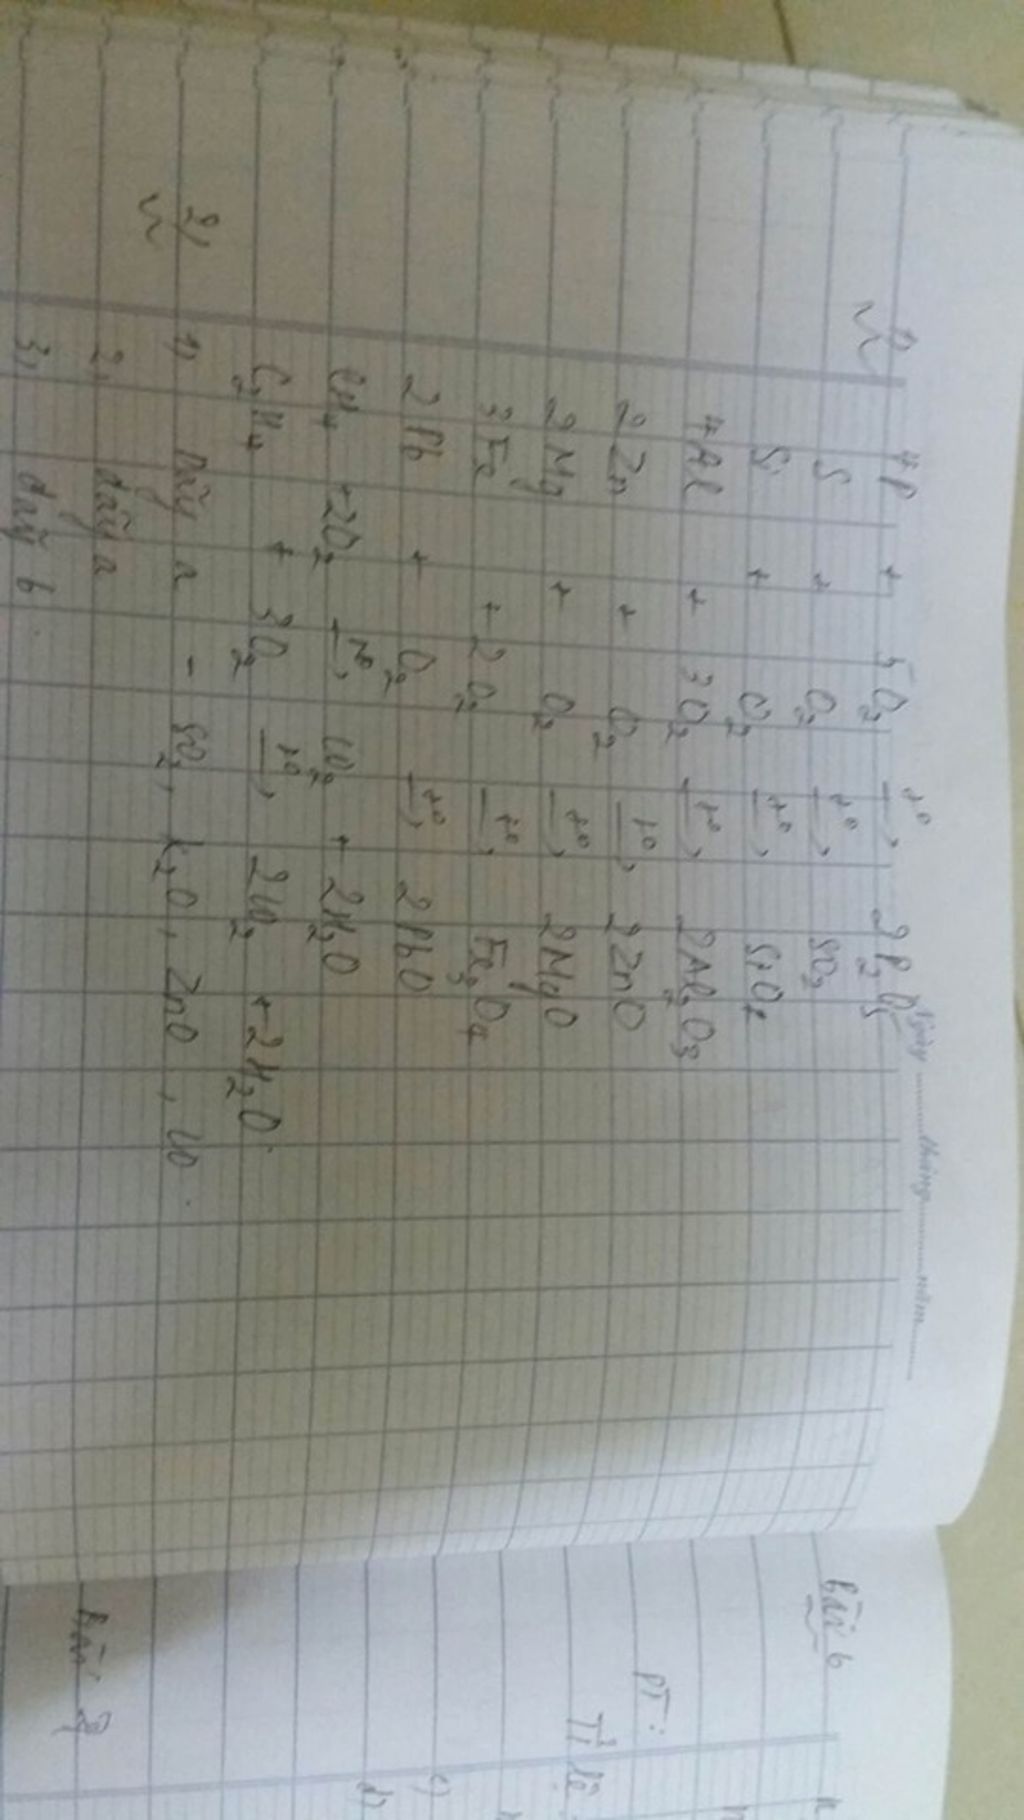 Ngày ......... tháng ......... năm .........
1) 4P + 5O₂ —t°→ 2P₂O₅
S + O₂ —t°→ SO₂
Si + O₂ —t°→ SiO₂
4Al + 3O₂ —t°→ 2Al₂O₃
2Zn + O₂ —t°→ 2ZnO
2Mg + O₂ —t°→ 2MgO
3Fe + 2O₂ —t°→ Fe₃O₄
2Pb + O₂ —t°→ 2PbO
CH₄ + 2O₂ —t°→ CO₂ + 2H₂O
C₂H₄ + 3O₂ —t°→ 2CO₂ + 2H₂O.
2) 1) Dãy a - SO₂, K₂O, ZnO, CO.
2, dãy a
3, dãy b.
Bài 6
PT:
Tỉ lệ
c)
d)
Bài 7